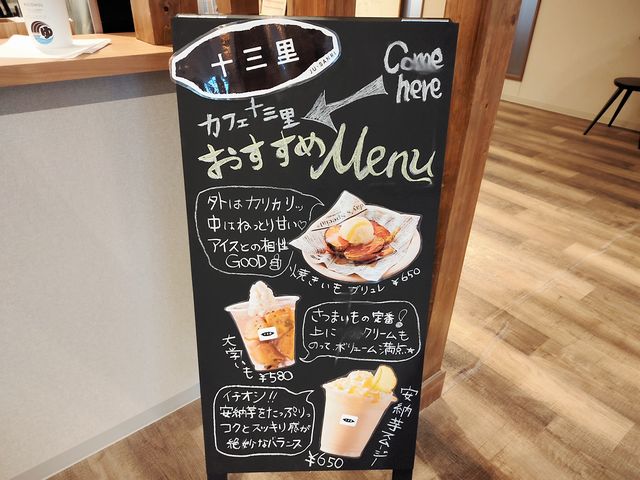 十三里
JU-SANRI
Come
here
カフェ十三里
おすすめMenu
外はカリカリッ
中はねっとり甘い♡
アイスとの相性
GOOD
焼きいもブリュレ ¥650
さつまいもの定番!
上に クリームも
のって、ボリューム満点★
大学いも
¥580
イチオシ!!
安納芋をたっぷりっ
コクとスッキリ感が
絶妙なバランス
安納芋スムージー
¥650